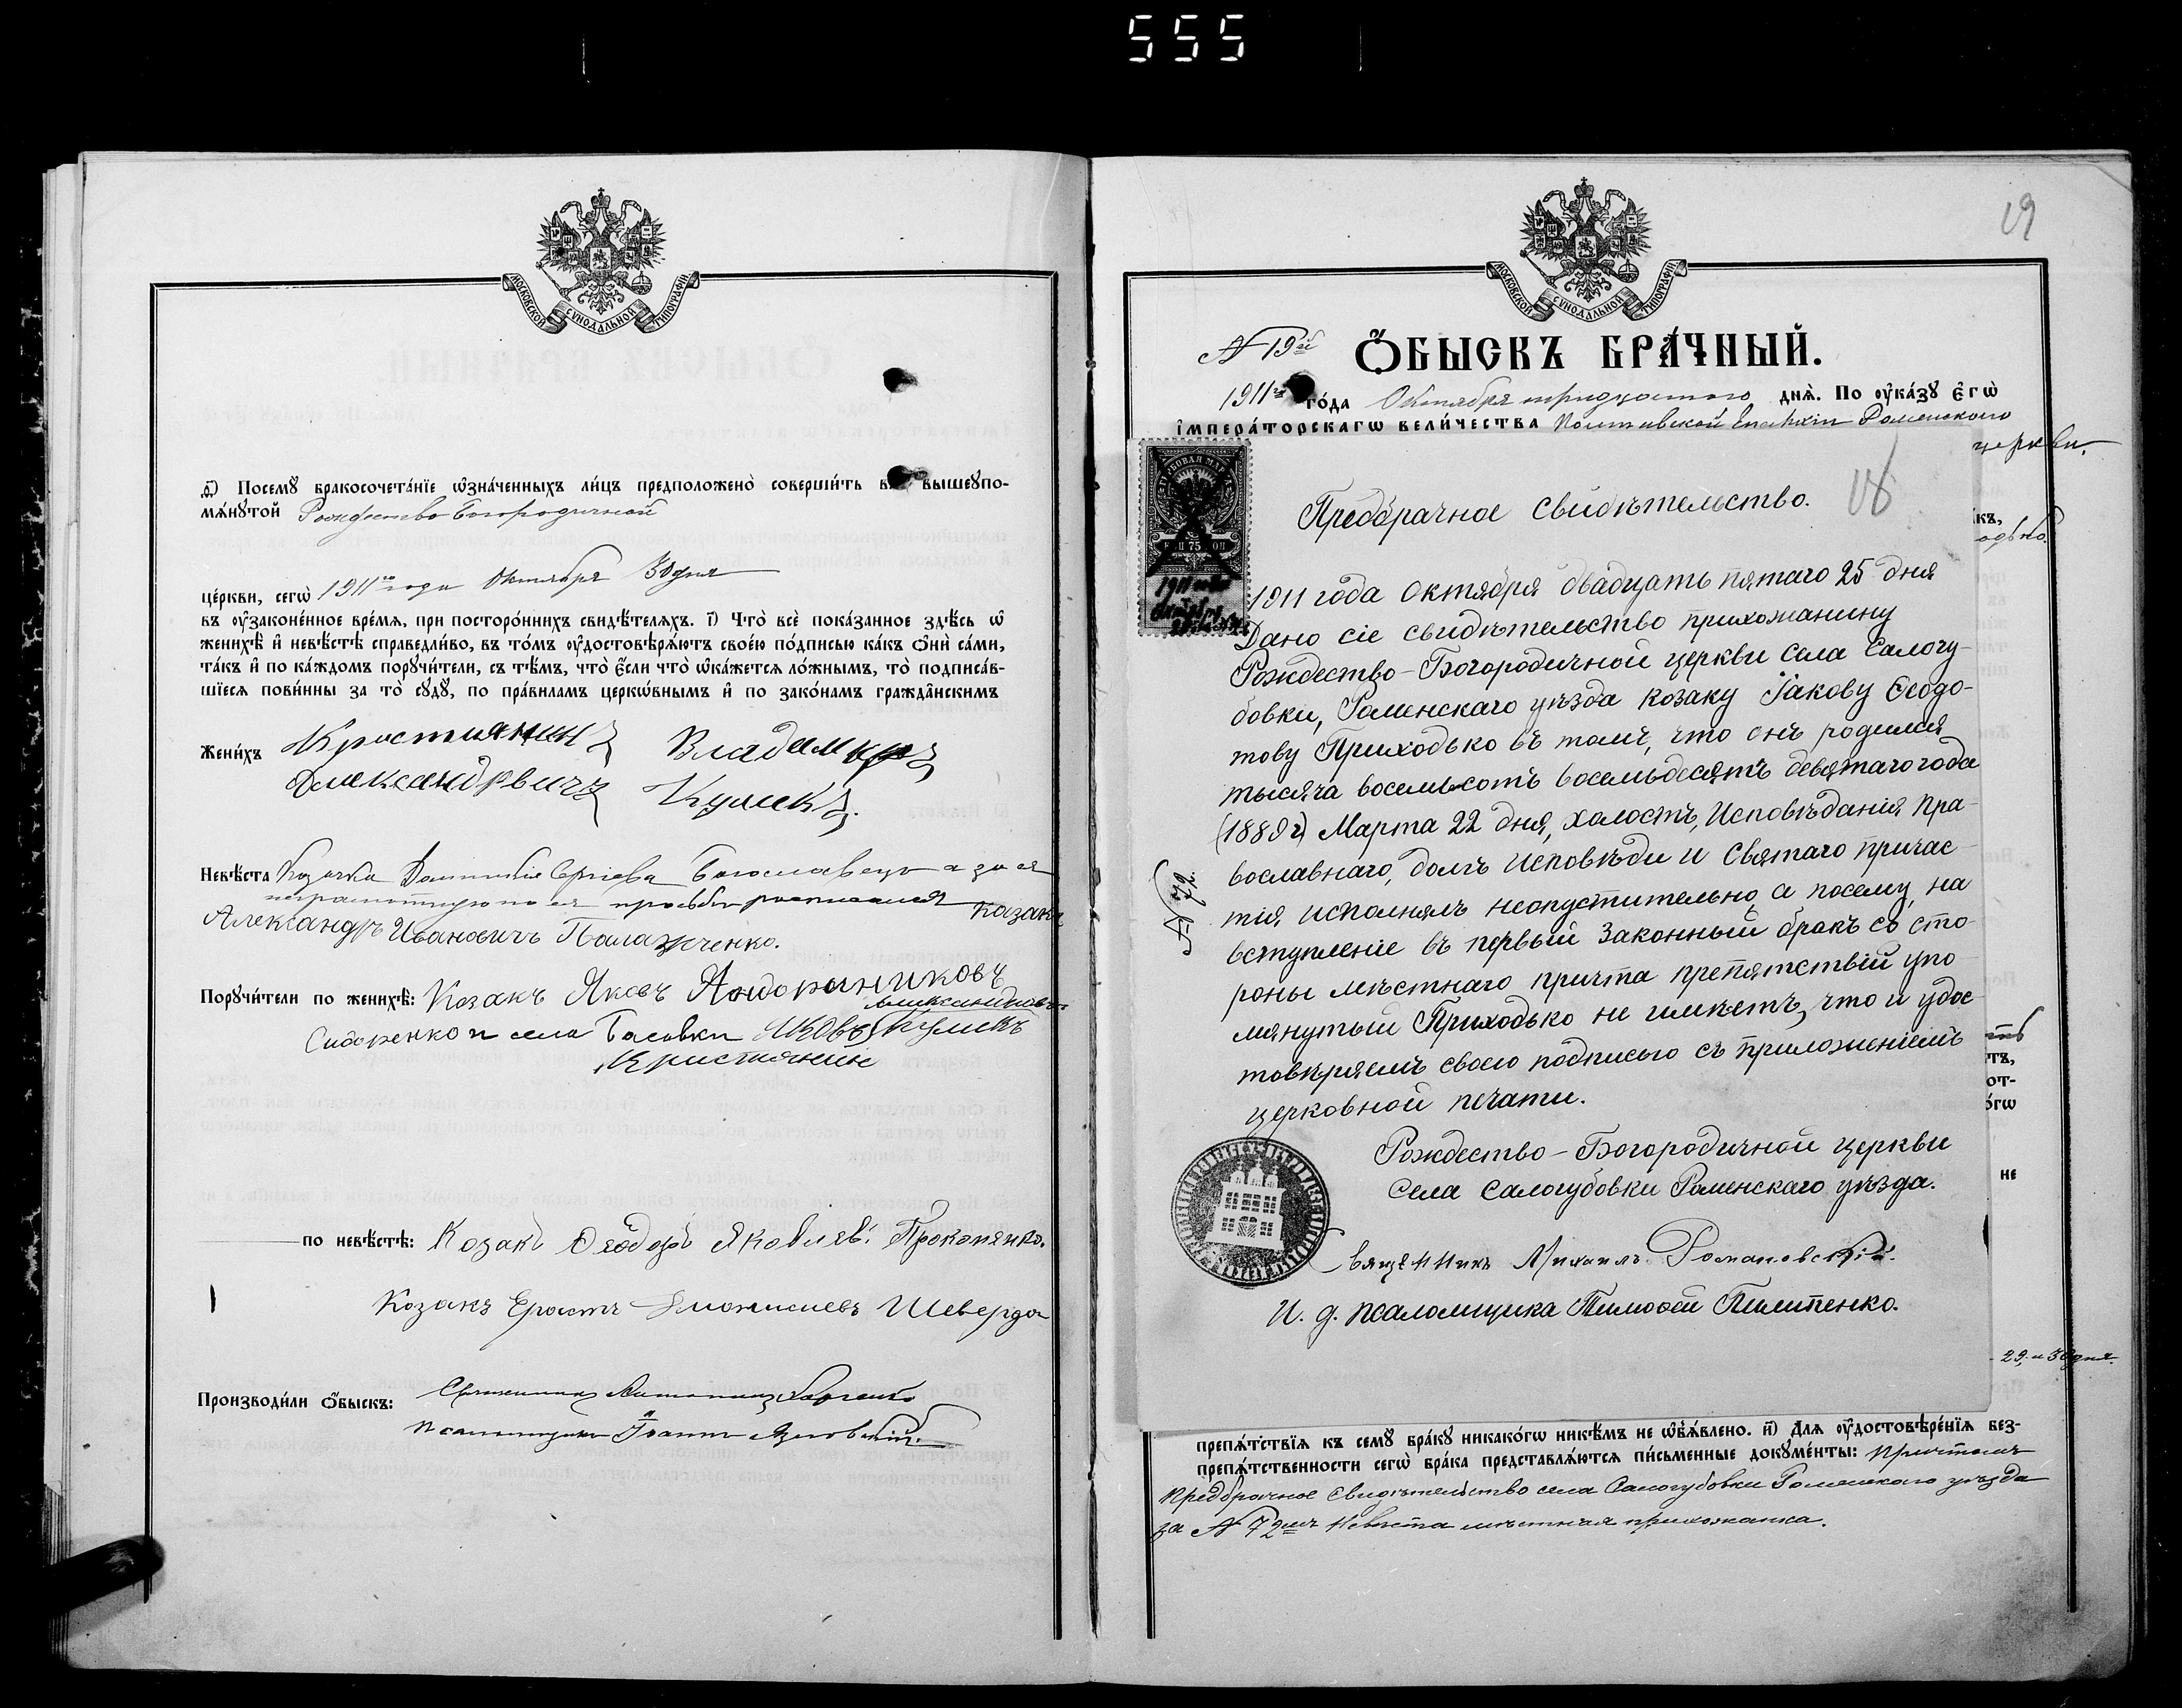 555
МОСКОВСКОЙ СѴНОДАЛЬНОЙ ТИПОГРАФІИ
ѳ҃) Посемꙋ̀ бракосочета́нїе ѡ҆зна́ченныхъ ли́цъ предположено̀ соверши́ть въ вышеꙋпо-
мѧ́нꙋтой Рождество Богородичной
це́ркви, сегѡ̀ 1911го года Октября 30 дня
въ ᲂу҆законе́нное вре́мѧ, при посторо́ннихъ свидѣ́телѧхъ. і҃) Что̀ всѐ пока́занное здѣ́сь ѡ҆
женихѣ̀ и҆ невѣ́стѣ справедли́во, въ то́мъ ᲂу҆достовѣрѧ́ютъ свое́ю по́дписью ка́къ ѻ҆нѝ са́ми,
та́къ и҆ по ка́ждомъ порꙋчи́тели, съ тѣ́мъ, что̀ є҆́сли что̀ ѡ҆ка́жетсѧ ло́жнымъ, то̀ подписа́в-
шїесѧ пови́нны за то̀ сꙋдꙋ̀, по пра́виламъ церкѡ́внымъ и҆ по зако́намъ гражда̂нскимъ
Жени́хъ Крестиянин Владимир
Александрвичъ Кулик.
Невѣ́ста Козачка Домникія Сергіева Богославецъ а за ея
неграмотную по ея просьбѣ росписался козакъ
Александръ Ивановичъ Палажченко.
Порꙋчи́тели по женихѣ̀: Козакъ Яковъ Андрониковъ
Сидоренко и села Басовки Яковъ Александровъ Куликъ
Кристиянин
по невѣ́стѣ: Козакъ Ѳеодоръ Яковлев. Прокопенко.
Козакъ Ерастъ Діонисиевъ Шевердо
Производи́ли ѻ҆́быскъ: Священникъ
Псаломщикъ Іоаннъ
19
МОСКОВСКОЙ СѴНОДАЛЬНОЙ ТИПОГРАФІИ
N 19й Ѻ҆́БЫСКЪ БРА́ЧНЫЙ.
1911го го́да Октября тридцатого днѧ̀. По ᲂу҆ка́зꙋ є҆гѡ̀
і҆мпера́торскагѡ вели́чества Полтавской Епархіи Роменского
церкви.
18
Предбрачное свидѣтельство.
1911 года Октября двадцать пятаго 25 дня
Дано сіе свидѣтельство прихожанину
Рождество-Богородичной церкви села Салогу-
бовки, Роменскаго уѣзда козаку Іакову Ѳеодо-
тову Приходько въ томъ, что онъ родился
тысяча восемьсотъ восемьдесятъ девятаго года
(1889 г) Марта 22 дня, холостъ, Исповѣданія Пра-
вославнаго, долгъ исповѣди и Святаго причас-
тія исполнялъ неопустительно, а посему, на
вступленіе въ первый Законный бракъ со сто-
роны мѣстнаго причта препятствій упо-
мянутый Приходько не имѣетъ, что и удос-
товѣряемъ своею подписью съ приложеніемъ
церковной печати.
N 72
Рождество-Богородичной церкви
Села Салогубовки Роменскаго уѣзда.
Священникъ Михаилъ Романовскій.
И. д. псаломщика Тимофей Пилипенко.
29 и 30 дня.
препѧ́тствїѧ къ семꙋ̀ бра́кꙋ никако́гѡ никѣ́мъ не ѡ҆б̾ѧ́влено. и҃) Длѧ̀ ᲂу҆достовѣре́нїѧ без-
препѧ́тственности сегѡ̀ бра́ка представлѧ́ютсѧ пи́сьменные докꙋме́нты: Причтомъ
Предбрачное Свидѣтельство села Салогубовки Роменского уѣзда
за N 72мъ Невѣста мѣстная прихожанка.